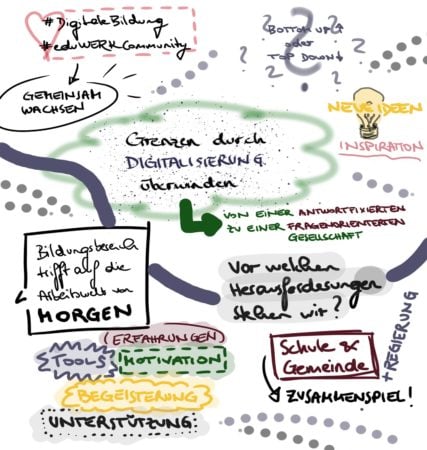 #DigitaleBildung
#eduWERKCommunity
GEMEINSAM
WACHSEN
BOTTOM UP↑
oder
TOP DOWN↓
? ? ? ? ? ? ?
NEUE IDEEN
INSPIRATION
Grenzen durch
DIGITALISIERUNG
überwinden
VON EINER ANTWORTFIXIERTEN
ZU EINER FRAGENORIENTERTEN
GESELLSCHAFT
Bildungsbereich
trifft auf die
Arbeitswelt von
MORGEN
Vor welchen
Herausforderungen
stehen wir?
ERFAHRUNGEN
TOOLS
MOTIVATION
BEGEISTERUNG
UNTERSTÜTZUNG
Schule &
Gemeinde
+ REGIERUNG
ZUSAMMENSPIEL!